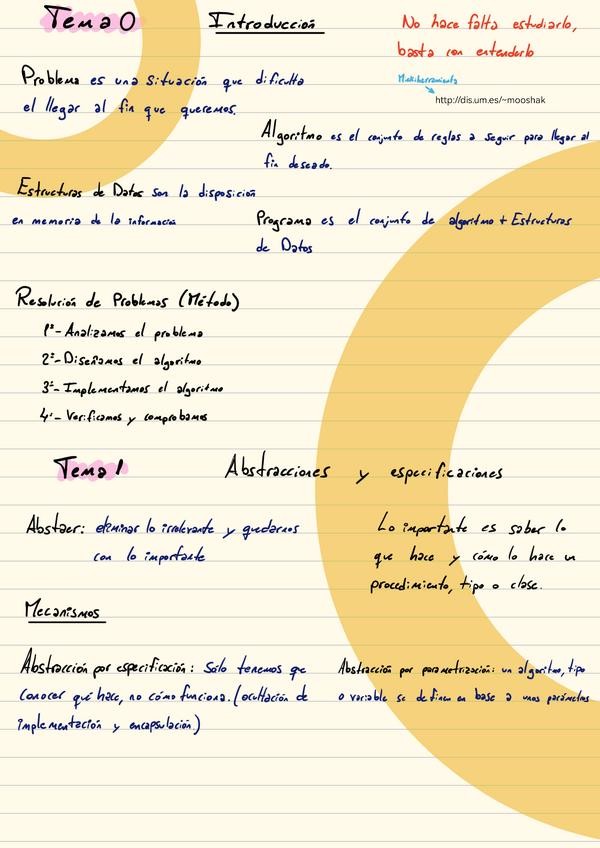 Tema 0 Introducción
No hace falta estudiarlo,
basta con entenderlo
Problema es una situación que dificulta
el llegar al fin que queremos.
http://dis.um.es/~mooshak
Algoritmo es el conjunto de reglas a seguir para llegar al
fin deseado.
Estructuras de Datos son la disposición
en memoria de la información
Programa es el conjunto de algoritmo + Estructuras
de Datos
Resolución de Problemas (Método)
1º- Analizamos el problema
2º- Diseñamos el algoritmo
3º- Implementamos el algoritmo
4º- Verificamos y comprobamos
Tema 1 Abstracciones y especificaciones
Abstaer: eliminar lo irrelevante y quedarnos
con lo importante
Lo importante es saber lo
que hace y cómo lo hace un
procedimiento, tipo o clase.
Mecanismos
Abstracción por especificación: Sólo tenemos que
conocer qué hace, no cómo funciona. (ocultación de
implementación y encapsulación)
Abstracción por parametrización: un algoritmo, tipo
o variable se definen en base a unos parámetros